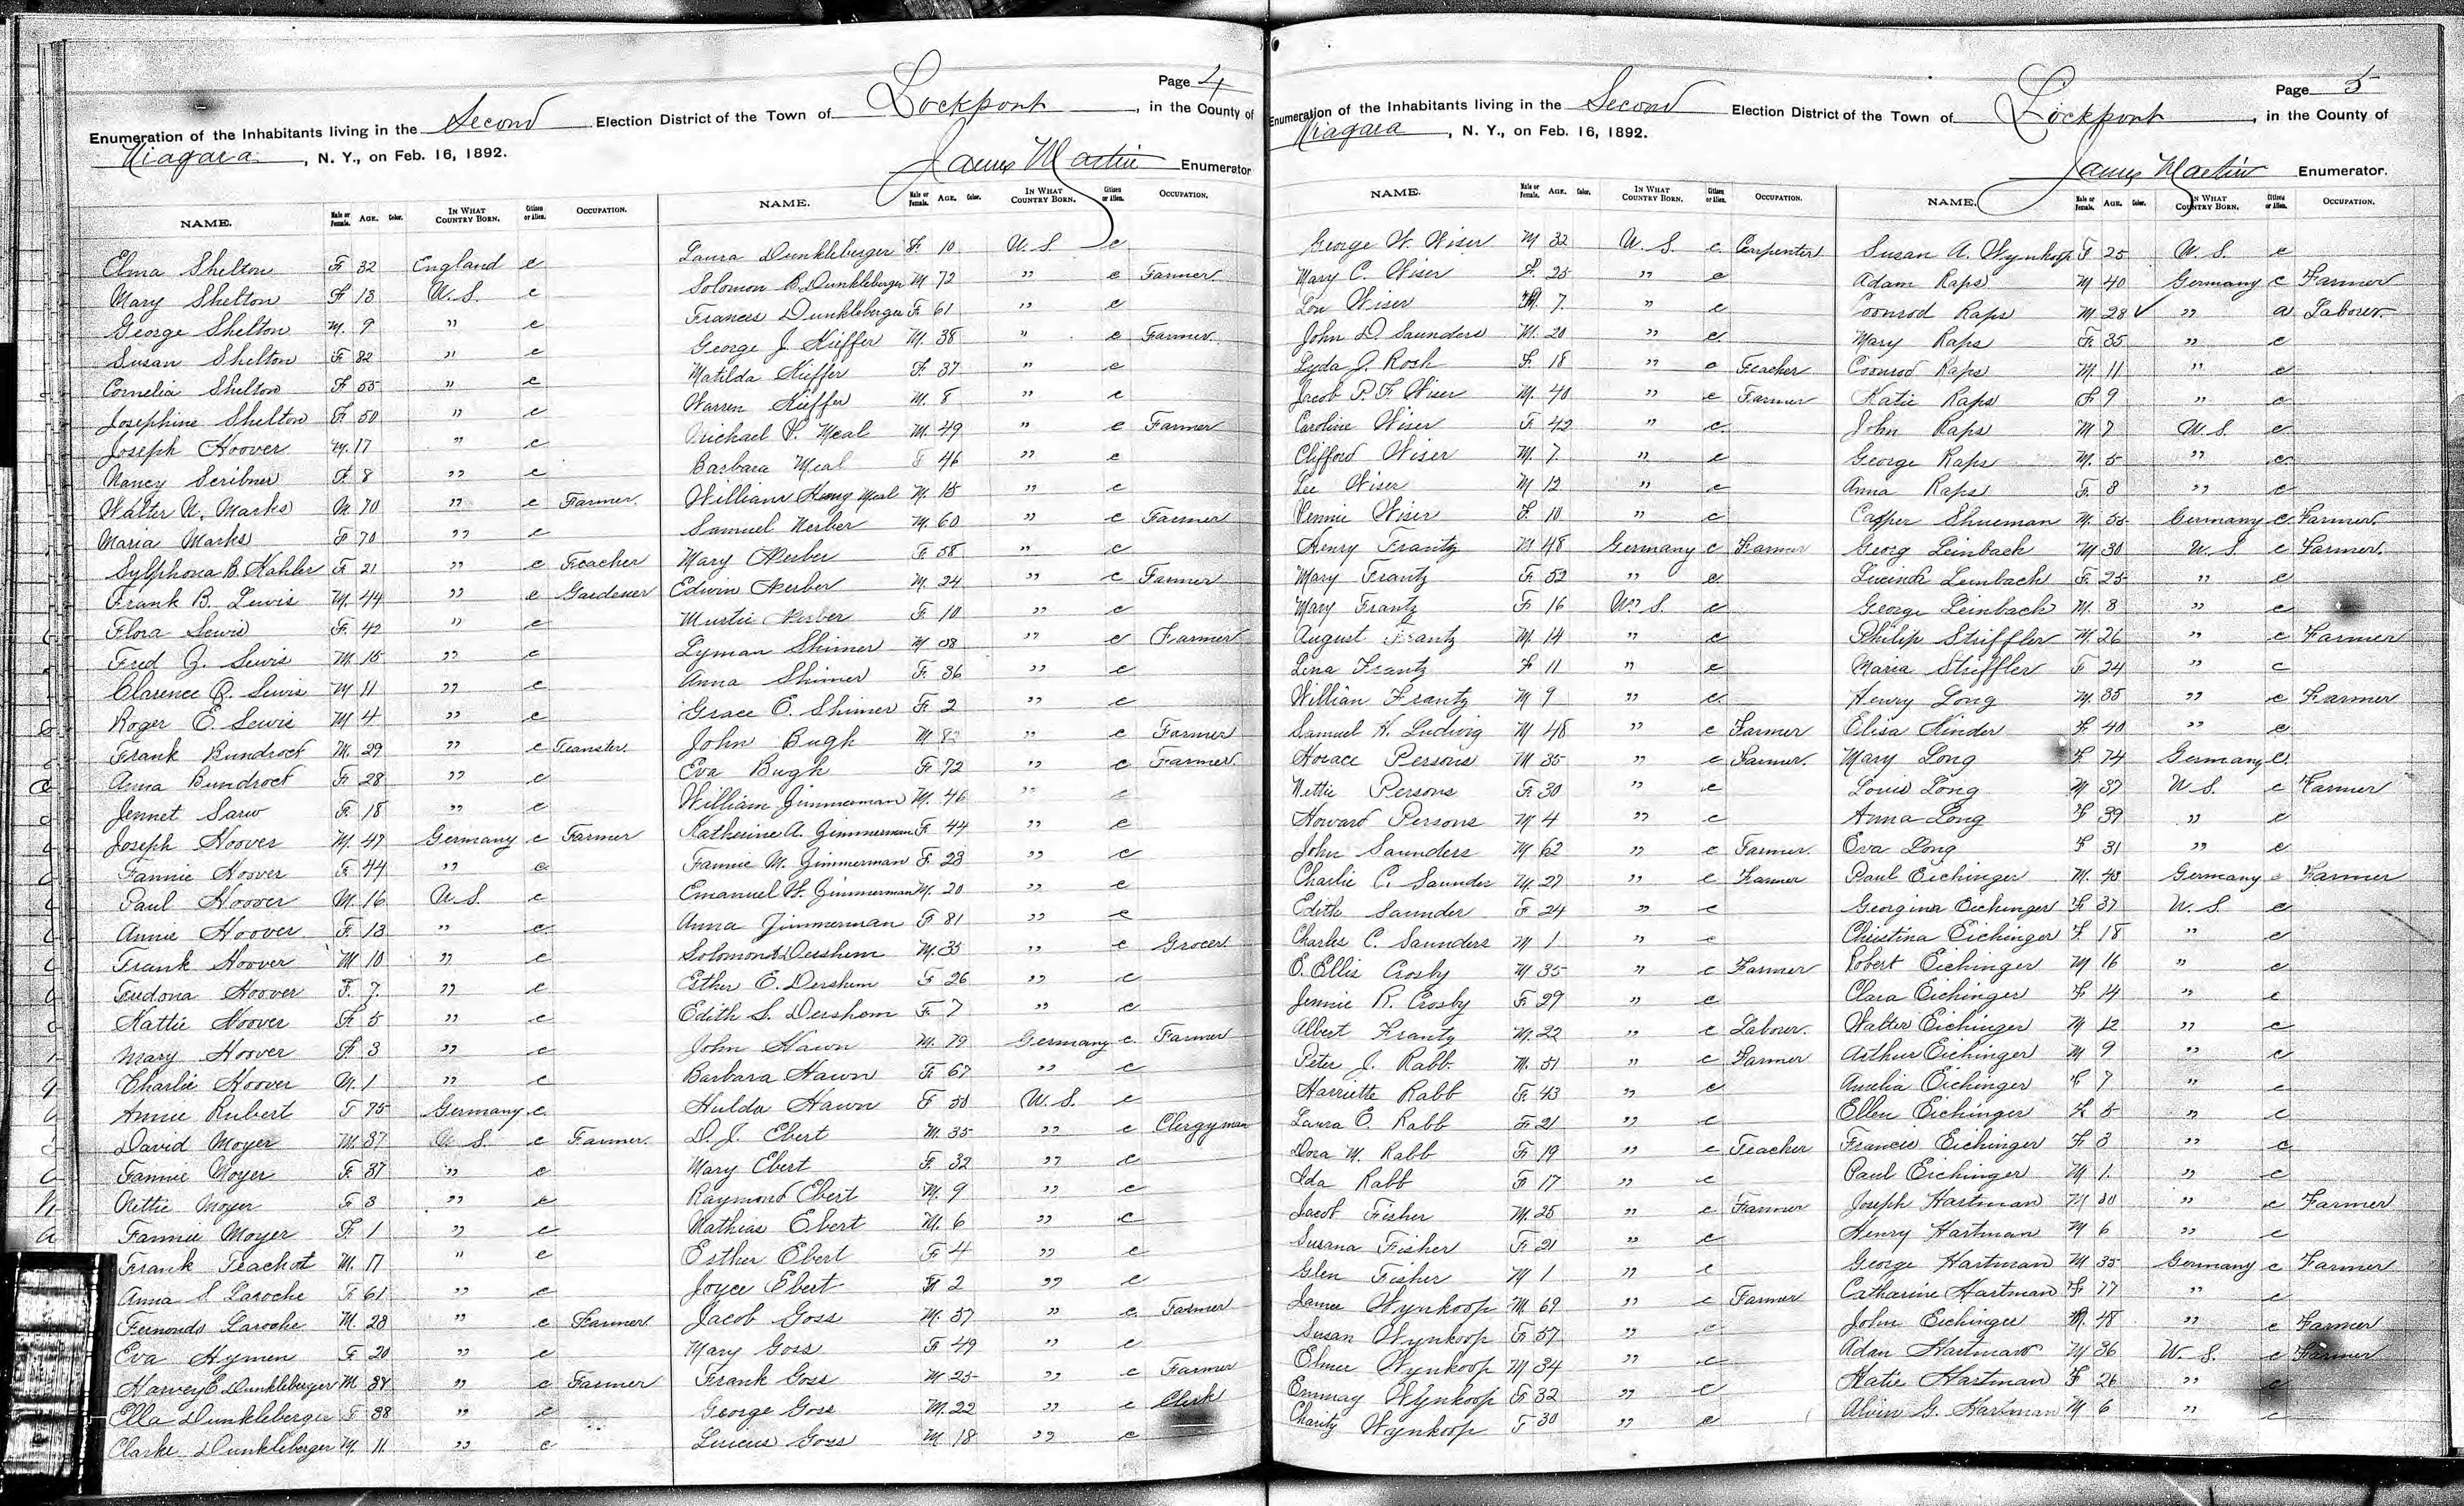 Page 4
Enumeration of the Inhabitants living in the Second Election District of the Town of Lockport, in the County of
Niagara, N. Y., on Feb. 16, 1892.
James Martin Enumerator
NAME. Male or Female. AGE. Color. IN WHAT COUNTRY BORN. Citizen or Alien. OCCUPATION.
Elma Shelton F 32 England c
Mary Shelton F 13 U. S. c
George Shelton M. 9 " c
Susan Shelton F 82 " c
Cornelia Shelton F 55 " c
Josephine Shelton F 50 " c
Joseph Hoover M. 17 " c
Nancy Scribner F 8 " c
Walter N. Marks M 70 " c Farmer.
Maria Marks F 70 " c
Sylphona B. Kahler F 21 " c Teacher
Frank B. Lewis M. 44 " c Gardener
Flora Lewis F. 42 " c
Fred J. Lewis M. 15 " c
Clarence R. Lewis M 11 " c
Roger E. Lewis M 4 " c
Frank Bundrock M. 29 " c Teamster.
Anna Bundrock F 28 " c
Jennet F. 18 " c
Joseph Hoover M. 47 Germany c Farmer
Fannie Hoover F 44 " c
Paul Hoover M. 16 U. S. c
Annie Hoover F 13 " c
Frank Hoover M 10 " c
Fredona Hoover F. 7. " c
Kattie Hoover F 5 " c
Mary Hoover F 3 " c
Charlie Hoover M. 1 " c
Annie Rubert F 75 Germany c
David Moyer M. 37 U. S. c Farmer.
Fannie Moyer F. 37 " c
Nettie Moyer F 3 " c
Fannie Moyer F. 1 " c
Frank Teachot M. 17 " c
Anna S Laroche F 61 " c
Laroche M. 28 " c Farmer.
Eva Hymen F 20 " c
Harvey E Dunkleberger M " c Farmer
Ella Dunkleberger F 38 " c
Clarke Dunkleberger M. 11. " c
NAME. Male or Female. AGE. Color. IN WHAT COUNTRY BORN. Citizen or Alien. OCCUPATION.
Laura Dunkleberger F. 10 U. S c
Solomon B. Dunkleberger M 72 " c Farmer.
Frances Dunkleberger F 61 " c
George J. Kieffer M. 38 " c Farmer.
Matilda Kieffer F. 37 " c
Warren Kieffer M. 8 " c
Michael P. Meal M. 49 " c Farmer
Barbara Meal F 46 " c
William Meal M. 15 " c
Samuel Nerber M. 60 " c Farmer
Mary Nerber F. 58 " c
Edwin Nerber M. 24 " c Farmer
Murtie Nerber F 10 " c
Lyman Shimer M " c Farmer
Anna Shimer F. 36 " c
Grace E. Shimer F 2 " c
John Bugh M " c Farmer
Eva Bugh F 72 " c Farmer.
William Zimmerman M. 46 " c
Katherine A. Zimmerman F 44 " c
Fannie M. Zimmerman F. 23 " c
Emanuel W. Zimmerman M. 20 " c
Anna Zimmerman F 81 " c
Solomon Dershem M. 35 " c Grocer
Esther E. Dershem F 26 " c
Edith S. Dershem F 7 " c
John Hawn M. 79 Germany c. Farmer
Barbara Hawn F 67 " c
Hulda Hawn F U. S. c
D. J. Ebert M. 35 " c Clergyman
Mary Ebert F. 32 " c
Raymond Ebert M. 9 " c
Mathias Ebert M. 6 " c
Esther Ebert F 4 " c
Joyce Ebert F 2 " c
Jacob Goss M. 57 " c Farmer
Mary Goss F 49 " c
Frank Goss M 25 " c Farmer
George Goss M. 22 " c Clerk
Lucius Goss M 18 " c
Page 5
Enumeration of the Inhabitants living in the Second Election District of the Town of Lockport, in the County of
Niagara, N. Y., on Feb. 16, 1892.
James Martin Enumerator.
NAME. Male or Female. AGE. Color. IN WHAT COUNTRY BORN. Citizen or Alien. OCCUPATION.
George W. Wiser M 32 U. S. c Carpenter
Mary C. Wiser F. 25 " c
Lon Wiser M. 7. " c
John D. Saunders M. 20 " c
Lyda J. Rosh F. 18 " c Teacher
Jacob P. F. Wiser M. 40 " c Farmer
Caroline Wiser F. 42 " c
Clifford Wiser M. 7. " c
Lee Wiser M 12 " c
Vennie Wiser F. 10 " c
Henry Frantz M 48 Germany c Farmer
Mary Frantz F. 52 " c
Mary Frantz F. 16 U. S. c
August Frantz M. 14 " c
Lena Frantz F 11 " c
Willian Frantz M 9 " c
Samuel H. Ludwig M 48 " c Farmer
Horace Persons M 35 " c Farmer.
Nettie Persons F. 30 " c
Howard Persons M 4 " c
John Saunders M 62 " c Farmer.
Charlie C. Saunder M. 27 " c Farmer
Edith Saunder F 24 " c
Charles C. Saunders M 1 " c
E. Ellis Crosby M 35 " c Farmer
Jennie R. Crosby F. 29 " c
Albert Frantz M. 22 " c Labour.
Peter J. Rabb. M. 51 " c Farmer
Harriette Rabb F. 43 " c
Laura E. Rabb F 21 " c
Dora M. Rabb F 19 " c Teacher
Ida Rabb F 17 " c
Jacob Fisher M. 25 " c Farmer
Susana Fisher F. 21 " c
Glen Fisher M 1 " c
James Wynkoop M 69 " c Farmer
Susan Wynkoop F 57 " c
Elmer Wynkoop M 34 " c
Emmay Wynkoop F 32 " c
Charity Wynkoop F 30 " c
NAME. Male or Female. AGE. Color. IN WHAT COUNTRY BORN. Citizen or Alien. OCCUPATION.
Susan A. Wynkoop F 25 U. S. c
Adam Raps M 40 Germany c Farmer
Coonrod Raps M 28 ✓ " a Laborer.
Mary Raps F. 35 " c
Coonrod Raps M 11 " c
Katie Raps F 9 " c
John Raps M 7 U. S. c
George Raps M. 5 " c
Anna Raps F. 3 " c
Casper Shueman M. 55 Germany c Farmer.
Georg Leinbach M 30 U. S c Farmer.
Lucinda Leinbach F. 25 " c
George Leinbach M. 8 " c
Philip Striffler M. 26 " c Farmer
Maria Striffler F 24 " c
Henry Long M. 35 " c Farmer
Elisa Kinder F. 40 " c
Mary Long F 74 Germany c.
Louis Long M 37 U. S. c Farmer
Anna Long F 39 " c
Eva Long F 31 " c
Paul Eichinger M. 43 Germany c Farmer
Georgina Eichinger F 37 U. S. c
Christina Eichinger F. 18 " c
Robert Eichinger M 16 " c
Clara Eichinger F 14 " c
Walter Eichinger M 12 " c
Arthur Eichinger M 9 " c
Amelia Eichinger F 7 " c
Ellen Eichinger F 5 " c
Francis Eichinger F 3 " c
Paul Eichinger M 1. " c
Joseph Hartman M 30 " c Farmer
Henry Hartman M 6 " c
George Hartman M 35 Germany c Farmer
Catharine Hartman F 77 " c
John Eichinger M. 48 " c Farmer
Adam Hartman M 36 U. S. c Farmer
Katie Hartman F 26 " c
Alvin G. Hartman M 6 " c